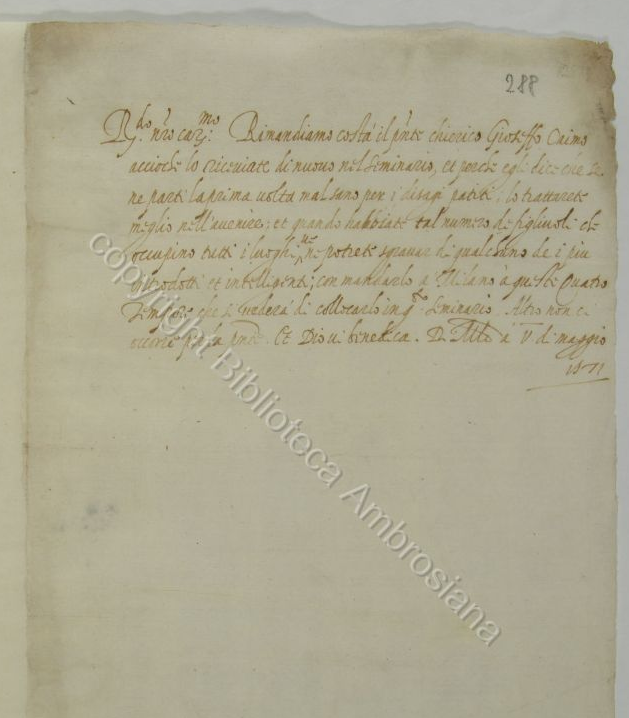 288
R.do nro car.mo Rimandiamo costà il pnte chierico Gioseffo Caimo
accioche lo riceviate di nuovo nel seminario, et perche egli dice che se
ne parti la prima volta mal sano per i disagi patiti, lo trattarete
meglio nell'avenire; et quando habbiate tal numero de figlivoli che
occupino tutti i luoghi, ve ne potrete sgravar di qualchuno de i piu
introdotti et intelligenti; con mandarlo a Milano à queste Quatro
Tempore che si vederà di collocarlo in q.to seminario. Altro non ci
occorre per la pnte. Et Dio vi benedica. Di Mlo à V di maggio
1571
copyright Biblioteca Ambrosiana